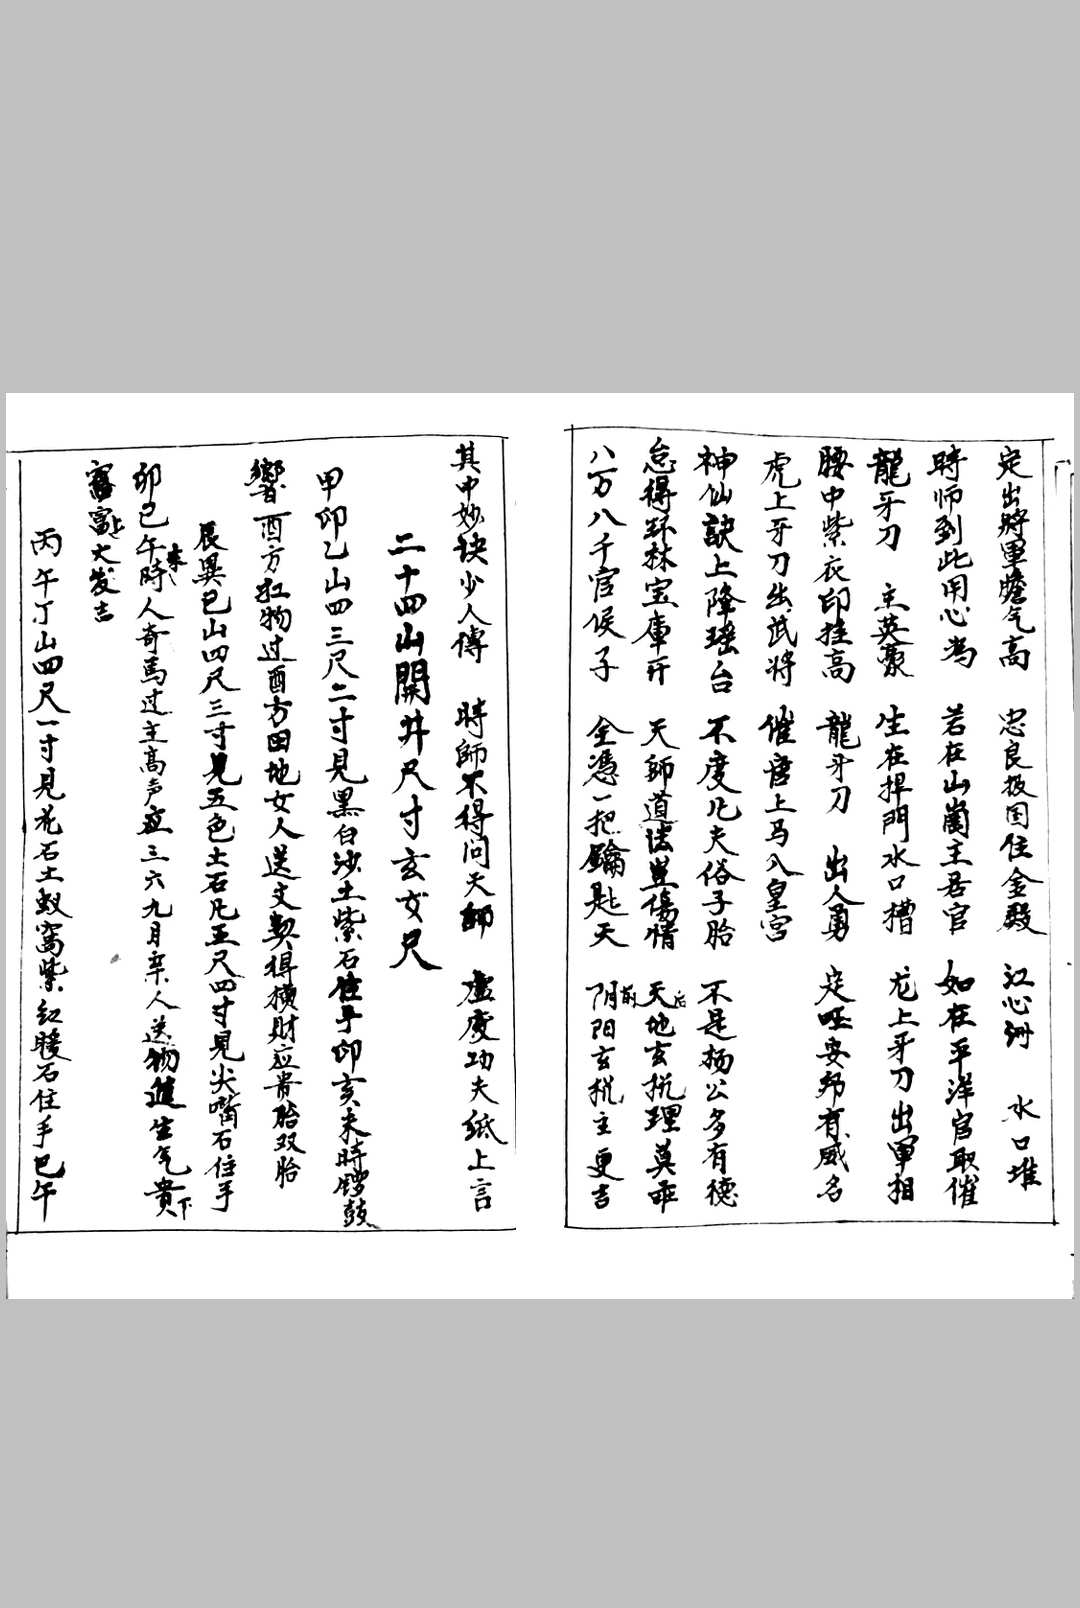 定出將軍膽气高 忠良报国住金殿 江心洲 水口堆
時师到此用心為 若在山崗主君官 如在平洋官取催
龍牙刀 主英豪 生在捍門水口槽 龙上牙刀出軍相
腰中紫衣印挂高 龍牙刀 出人勇 定旺安邦有威名
虎上牙刀出武將 催官上马入皇宫
神仙訣上降瑶台 不度凡夫俗子胎 不是杨公多有德
怠得环林宝庫开 天師道法豈傷情 天后地玄挩理莫乖
八万八千官侯子 全憑一把鑰匙天 阴前阳玄挩主更吉
其中妙诀少人傳 時師不得问天師 虛度功夫纸上言
二十四山開井尺寸玄女尺
甲卯乙山四三尺二寸見黑白沙土紫石住手卯亥未時锣鼓
響酉方扛物过酉方田地女人送文契得横財应貴胎双胎
辰巽巳山四尺三寸見五色土石凡五尺四寸見尖嘴石住手
卯巳午時人奇馬过主高声应三六九月亲人送物進生气貴下
富上大发吉
丙午丁山四尺一寸見花石土蚁窩紫红暖石住手巳午